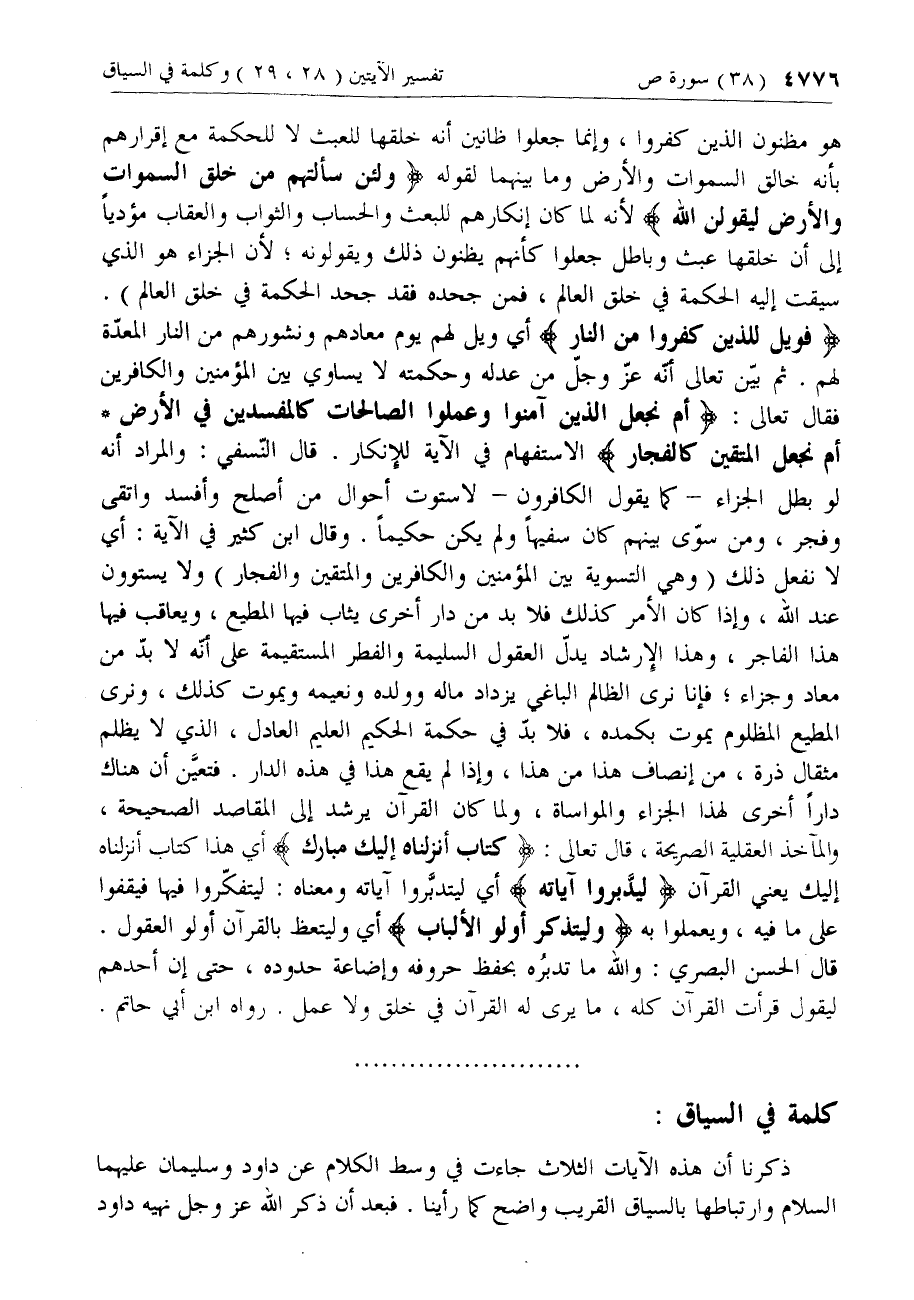 ٤٧٧٦ (٣٨) سورة ص تفسير الآيتين ( ٢٨ ، ٢٩ ) وكلمة في السياق
هو مظنون الذين كفروا ، وإنما جعلوا ظانين أنه خلقها للعبث لا للحكمة مع إقرارهم
بأنه خالق السموات والأرض وما بينهما لقوله ﴿ ولئن سألتهم من خلق السموات
والأرض ليقولن الله ﴾ لأنه لما كان إنكارهم للبعث والحساب والثواب والعقاب مؤدياً
إلى أن خلقها عبث وباطل جعلوا كأنهم يظنون ذلك ويقولونه ؛ لأن الجزاء هو الذي
سيقت إليه الحكمة في خلق العالم ، فمن جحده فقد جحد الحكمة في خلق العالم ) .
﴿ فويل للذين كفروا من النار ﴾ أي ويل لهم يوم معادهم ونشورهم من النار المعدّة
لهم . ثم بيّن تعالى أنّه عزّ وجلّ من عدله وحكمته لا يساوي بين المؤمنين والكافرين
فقال تعالى : ﴿ أم نجعل الذين آمنوا وعملوا الصالحات كالمفسدين في الأرض *
أم نجعل المتقين كالفجار ﴾ الاستفهام في الآية للإنكار . قال النّسفي : والمراد أنه
لو بطل الجزاء – كما يقول الكافرون – لاستوت أحوال من أصلح وأفسد واتقى
وفجر ، ومن سوّى بينهم كان سفيهاً ولم يكن حكيماً . وقال ابن كثير في الآية : أي
لا نفعل ذلك ( وهي التسوية بين المؤمنين والكافرين والمتقين والفجار ) ولا يستوون
عند الله ، وإذا كان الأمر كذلك فلا بد من دار أخرى يثاب فيها المطيع ، ويعاقب فيها
هذا الفاجر ، وهذا الإرشاد يدلّ العقول السليمة والفطر المستقيمة على أنّه لا بدّ من
معاد وجزاء ؛ فإنا نرى الظالم الباغي يزداد ماله وولده ونعيمه ويموت كذلك ، ونرى
المطيع المظلوم يموت بكمده ، فلا بدّ في حكمة الحكيم العليم العادل ، الذي لا يظلم
مثقال ذرة ، من إنصاف هذا من هذا ، وإذا لم يقع هذا في هذه الدار . فتعيَّن أن هناك
داراً أخرى لهذا الجزاء والمواساة ، ولما كان القرآن يرشد إلى المقاصد الصحيحة ،
والمآخذ العقلية الصريحة ، قال تعالى : ﴿ كتاب أنزلناه إليك مبارك ﴾ أي هذا كتاب أنزلناه
إليك يعني القرآن ﴿ ليدَّبروا آياته ﴾ أي ليتدبَّروا آياته ومعناه : ليتفكّروا فيها فيقفوا
على ما فيه ، ويعملوا به ﴿ وليتذكر أولو الألباب ﴾ أي وليتعظ بالقرآن أولو العقول .
قال الحسن البصري : والله ما تدبرُه بحفظ حروفه وإضاعة حدوده ، حتى إن أحدهم
ليقول قرأت القرآن كله ، ما يرى له القرآن في خلق ولا عمل . رواه ابن أبي حاتم .
.........................
كلمة في السياق :
ذكرنا أن هذه الآيات الثلاث جاءت في وسط الكلام عن داود وسليمان عليهما
السلام وارتباطها بالسياق القريب واضح كما رأينا . فبعد أن ذكر الله عز وجل نهيه داود